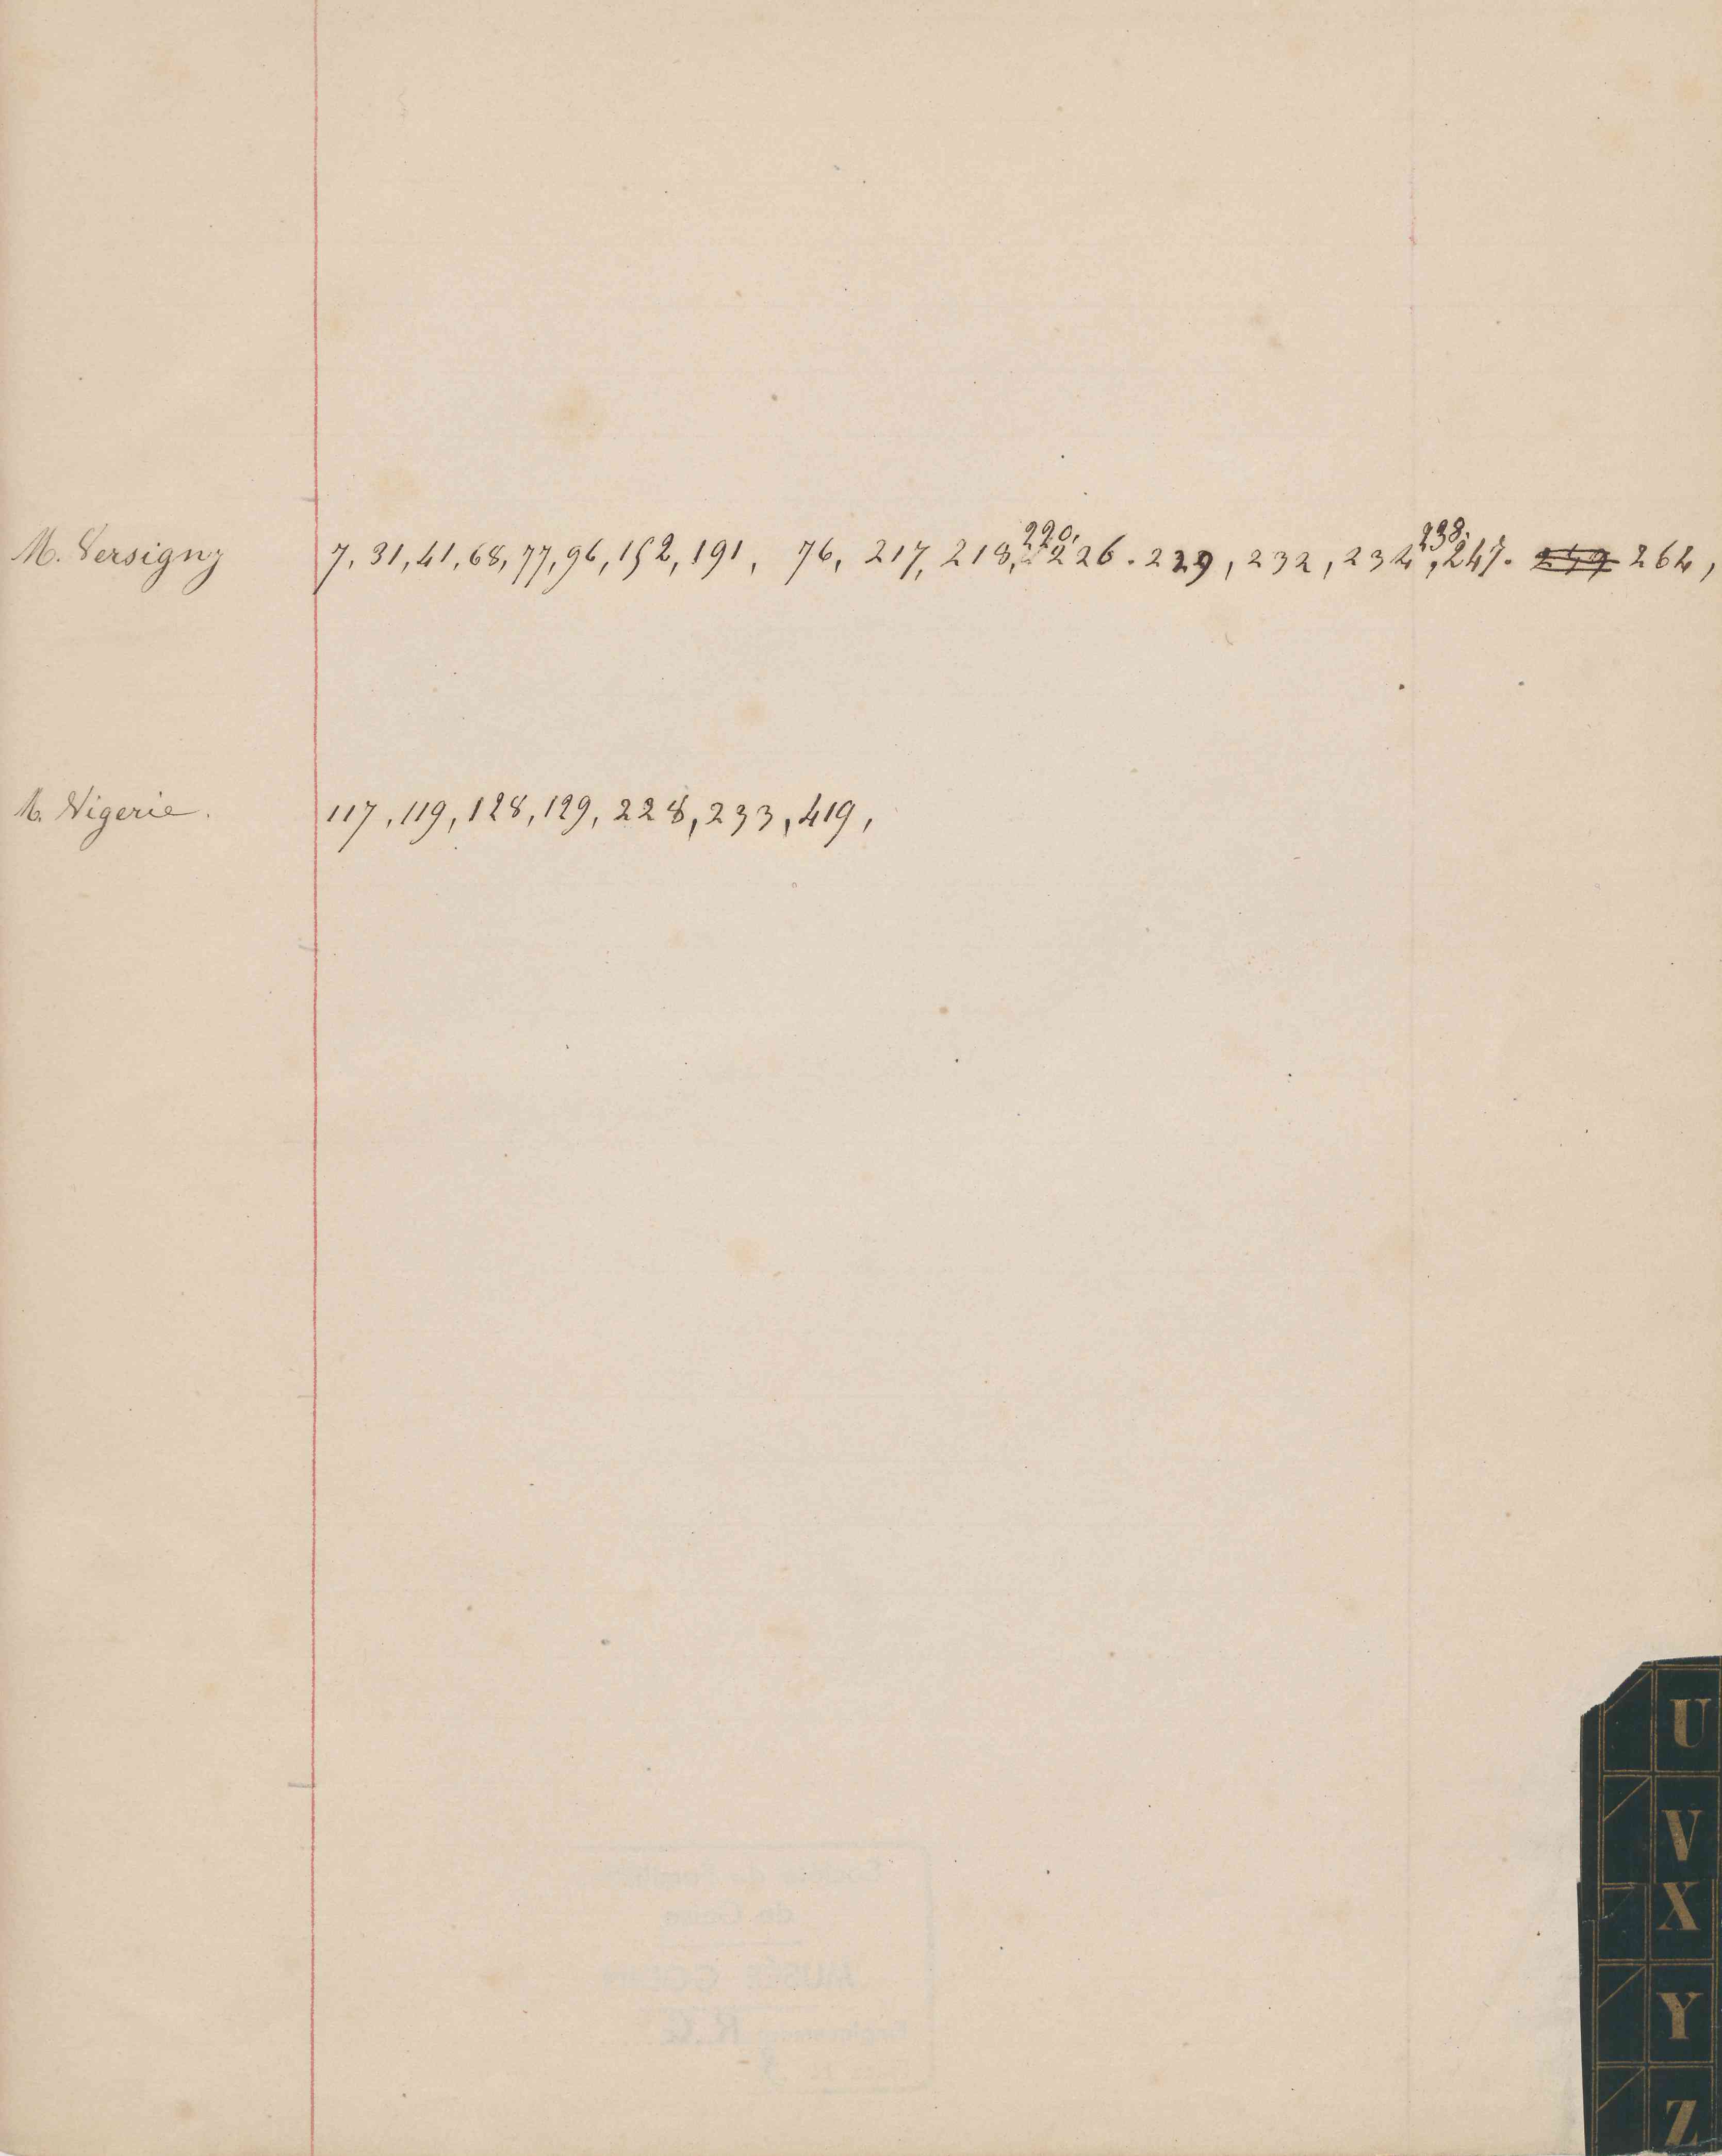 M. Versigny 7, 31, 41, 68, 77, 96, 152, 191, 76, 217, 218, 220, 226. 229, 232, 234, 238. 247. 264,
M. Vigerie. 117, 119, 128, 129, 228, 233, 419,
U
V
X
Y
Z